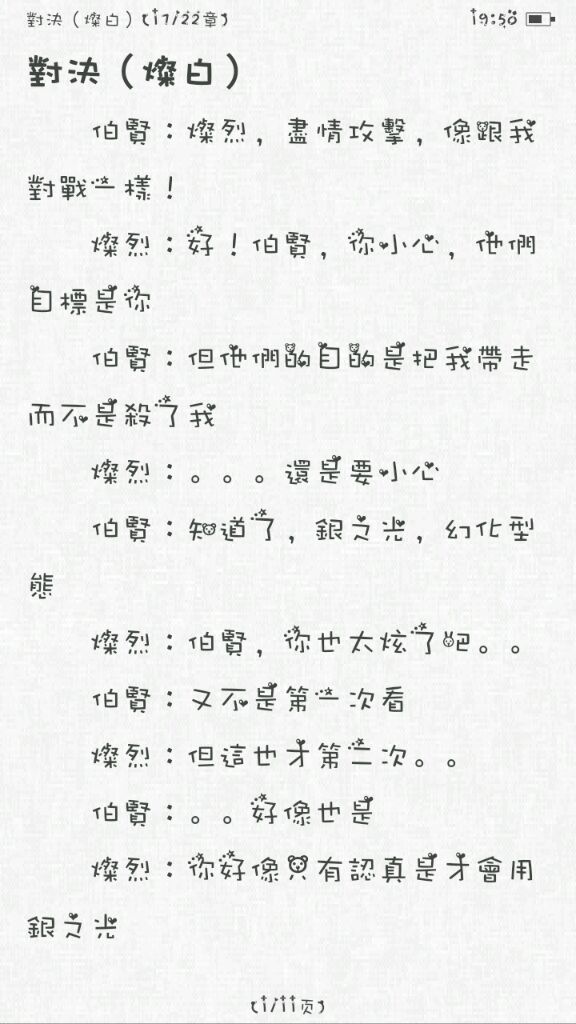 對決（燦白）(17/22章)
19:50
對決（燦白）
伯賢：燦烈，盡情攻擊，像跟我
對戰一樣！
燦烈：好！伯賢，你小心，他們
目標是你
伯賢：但他們的目的是把我帶走
而不是殺了我
燦烈：。。。還是要小心
伯賢：知道了，銀之光，幻化型
態
燦烈：伯賢，你也太炫了吧。。
伯賢：又不是第一次看
燦烈：但這也才第二次。。
伯賢：。。好像也是
燦烈：你好像只有認真是才會用
銀之光
(1/11页)